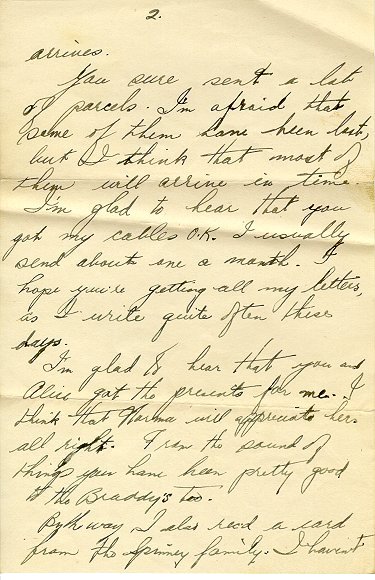 2.
arrives.
You sure sent a lot
of parcels. I'm afraid that
some of them have been lost,
but I think that most of
them will arrive in time.
I'm glad to hear that you
got my cables O.K. I usually
send about one a month. I
hope you're getting all my letters,
as I write quite often these
days.
I'm glad to hear that you and
Alice got the presents for me. I
think that Norma will appreciate hers
all right. From the sound of
things you have been pretty good
to the Braddy's too.
By the way, I also recd a card
from the Spinney family. I haven't